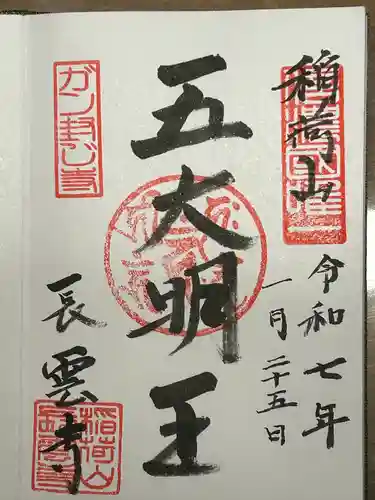 稲荷山
令和七年
一月二十五日
五大明王
ガン封じ寺
長雲寺
稲荷山